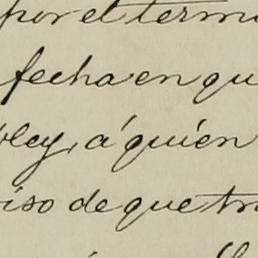 por el termi
fecha en qu
ley, á quien
iso de que tra